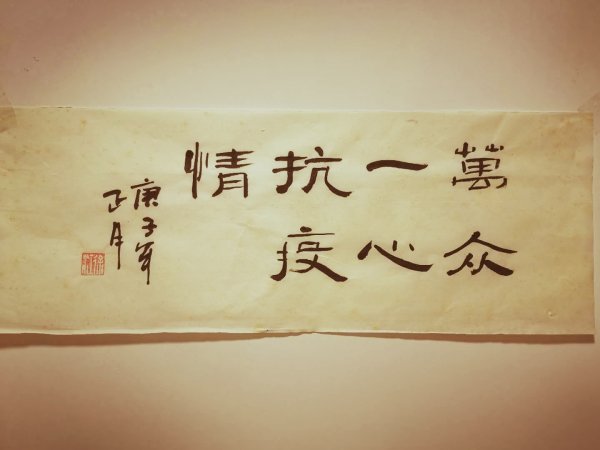 萬众
一心
抗疫
情
庚子年
正月